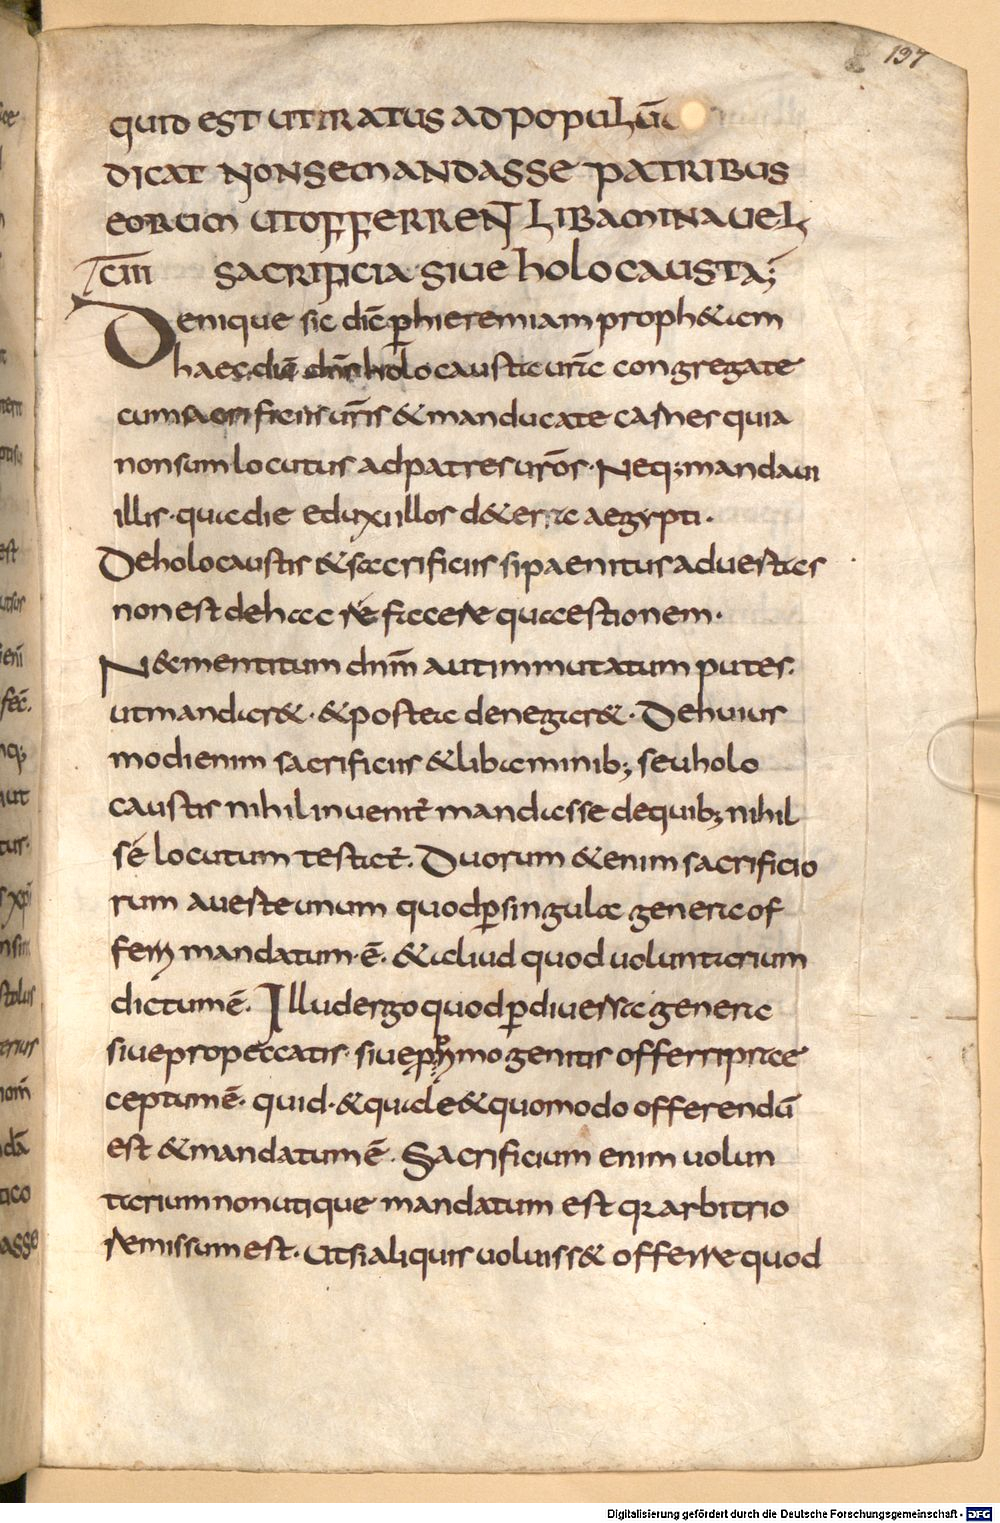 137
QUID EST UT IRATUS AD POPULŪ
DICAT NON SE MANDASSE PATRIBUS
EORUM UT OFFERRENT LIBAMINA UEL
CIII SACRIFICIA SIUE holOCAUSTA;
Denique sic dic̄ ꝑ hieremiam proph&am
haec dic̄ dn̄s holocausta ur̄a congregate
cum sacrificiis ur̄is & manducate carnes quia
non sum locutus ad patres ur̄os· Neq; mandaui
illis· qua die eduxi illos de terra aegypti·
De holocaustis & sacrificiis si paenitus aduertas
non est de hac re facere quaestionem·
Ne mentitum dn̄m aut immutatum putes·
ut mandar&· & postea denegar&· De huius
modi enim sacrificiis & libaminib; seu holo
caustis nihil inuenit̄ mandasse de quib; nihil
se locutum testat̄· Duorum &enim sacrificio
rum a ueste unum quod ꝑ singula genera of
ferri mandatum ē· & aliud quod uoluntarium
dictum ē· Illud ergo quod ꝑ diuersa genera
siue pro peccatis· siue primogenitis offerri prae
ceptum ē· quid· & quale & quomodo offerendū
est & mandatum ē· Sacrificium enim uolun
tarium non utique mandatum est qr arbitrio
remissum est· ut si aliquis uoluiss& offerre quod
Digitalisierung gefördert durch die Deutsche Forschungsgemeinschaft - DFG